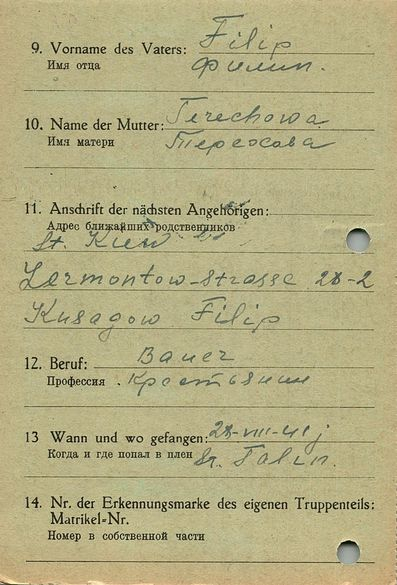 9. Vorname des Vaters: Filip
Имя отца Филип.
10. Name der Mutter: Terechowa
Имя матери Терехова
11. Anschrift der nächsten Angehörigen:
Адрес ближайших родственников
St. Kiew
Lermontow-Strasse 28-2
Kusagow Filip
12. Beruf: Bauer
Профессия. Крестьянин
13 Wann und wo gefangen: 28-VIII-41j
Когда и где попал в плен St. Talin.
14. Nr. der Erkennungsmarke des eigenen Truppenteils:
Matrikel=Nr.
Номер в собственной части